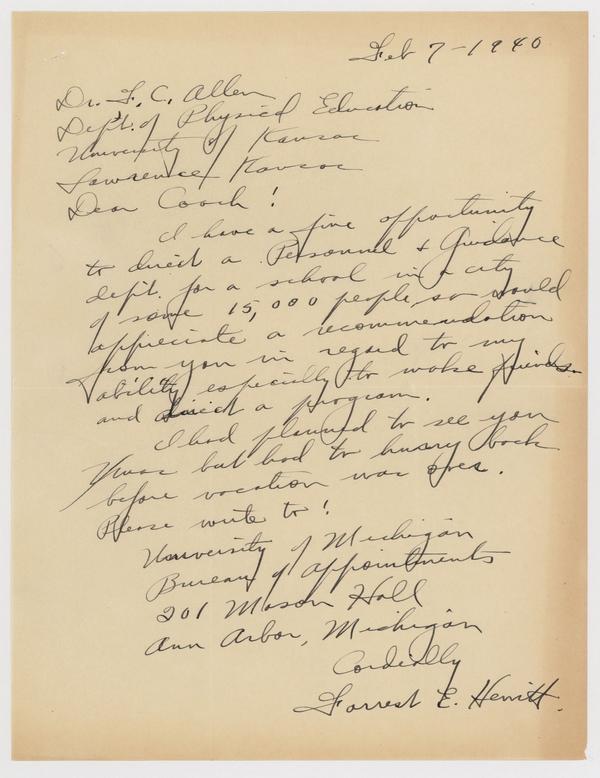 Feb 7-1940
Dr. F. C. Allen
Dept. of Physical Education
University of Kansas
Lawrence, Kansas
Dear Coach!
I have a fine opportunity
to direct a Personnel & Guidance
dept. for a school in a city
of some 15,000 people, so would
appreciate a recommendation
from you in regard to my
ability especially to make friends
and direct a program.
I had planned to see you
Xmas but had to hurry back
before vacation was over.
Please write to!
University of Michigan
Bureau of Appointments
201 Mason Hall
Ann Arbor, Michigan
Cordially
Forrest E. Hewitt.